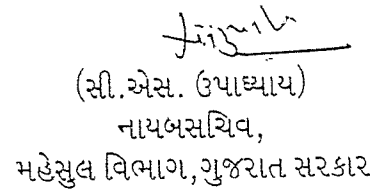 (સી.એસ. ઉપાધ્યાય)
નાયબસચિવ,
મહેસુલ વિભાગ,ગુજરાત સરકાર